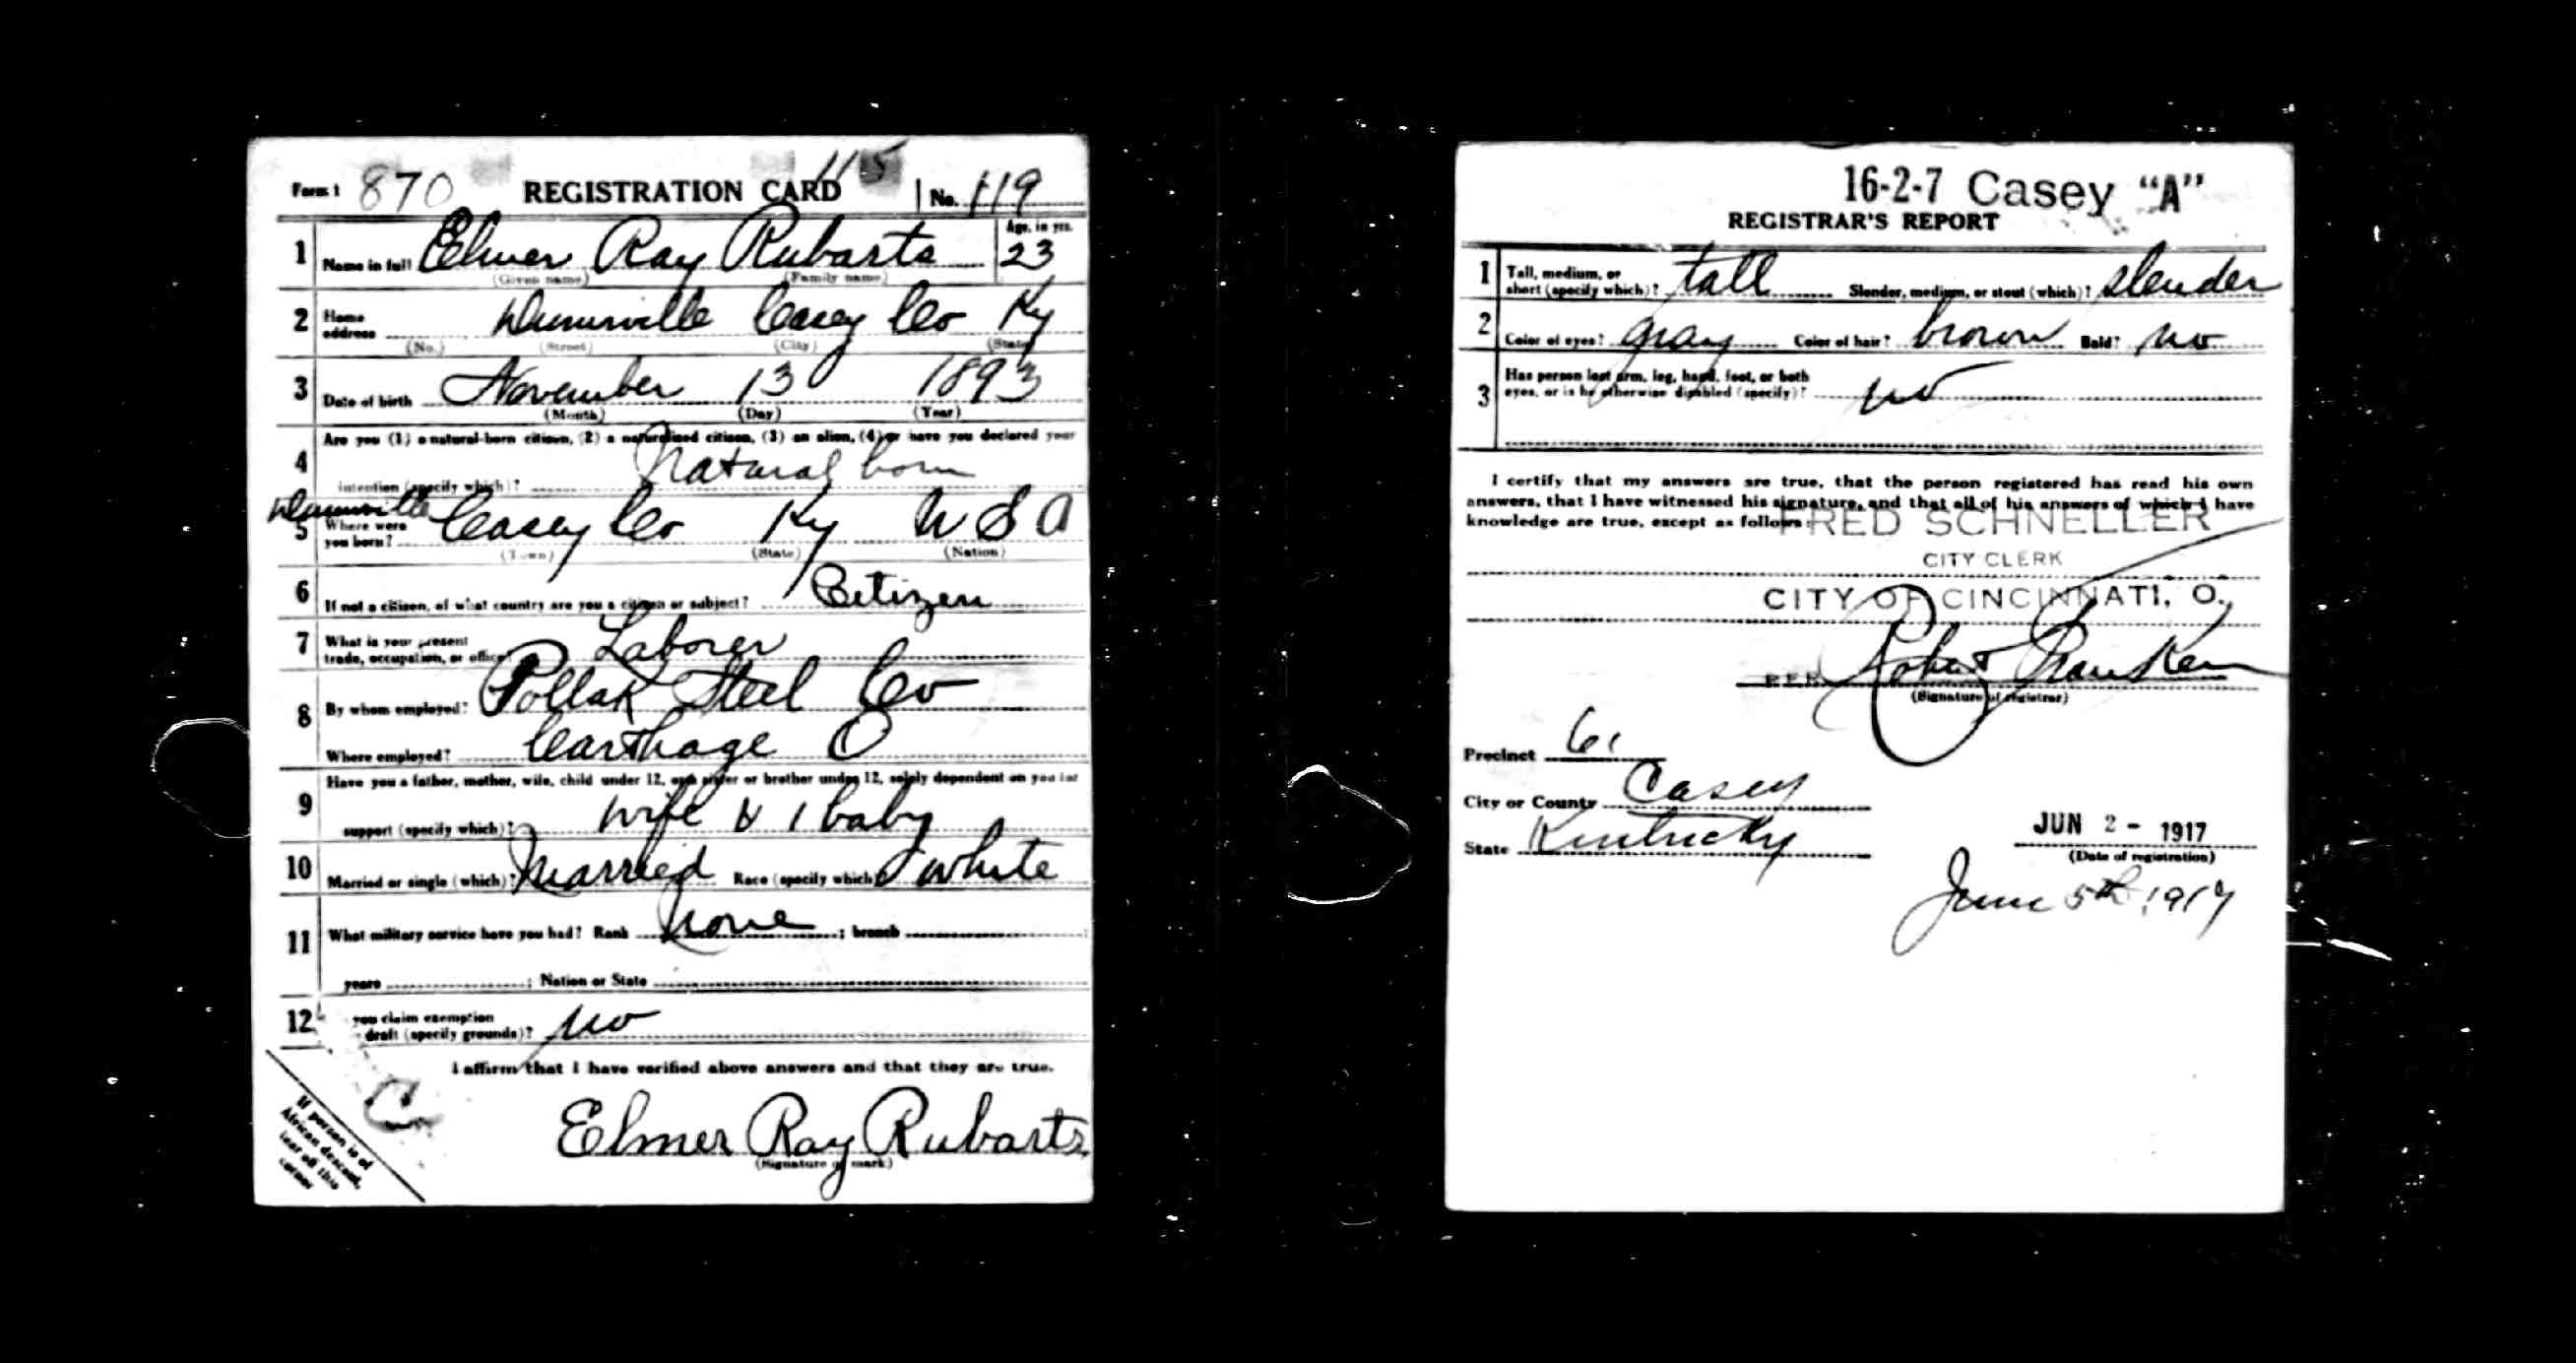 Form 1 870 REGISTRATION CARD 115 No. 119
1 Name in full Elmer Ray Rubarts Age, in yrs. 23
(Given name) (Family name)
2 Home address Dunnville Casey Co Ky
(No.) (Street) (City) (State)
3 Date of birth November 13 1893
(Month) (Day) (Year)
4 Are you (1) a natural-born citizen, (2) a naturalized citizen, (3) an alien, (4) or have you declared your
intention (specify which)? Natural born
5 Where were you born? Dunnville Casey Co Ky U S A
(Town) (State) (Nation)
6 If not a citizen, of what country are you a citizen or subject? Citizen
7 What is your present trade, occupation, or office? Laborer
8 By whom employed? Pollak Steel Co
Where employed? Carthage O
9 Have you a father, mother, wife, child under 12, or a sister or brother under 12, solely dependent on you for
support (specify which)? wife & 1 baby
10 Married or single (which)? Married Race (specify which)? white
11 What military service have you had? Rank none ; branch
years ; Nation or State
12 you claim exemption
draft (specify grounds)? no
I affirm that I have verified above answers and that they are true.
Elmer Ray Rubarts
(Signature or mark)
If person is of
African descent,
tear off this
corner
16-2-7 Casey "A"
REGISTRAR'S REPORT
1 Tall, medium, or short (specify which)? tall Slender, medium, or stout (which)? slender
2 Color of eyes? gray Color of hair? brown Bald? no
3 Has person lost arm, leg, hand, foot, or both
eyes, or is he otherwise disabled (specify)? no
I certify that my answers are true, that the person registered has read his own
answers, that I have witnessed his signature, and that all of his answers of which I have
knowledge are true, except as follows:
FRED SCHNELLER
CITY CLERK
CITY OF CINCINNATI, O.
PER Robert
(Signature of registrar)
Precinct 6
City or County Casey
State Kentucky
JUN 2 - 1917
(Date of registration)
June 5th 1917